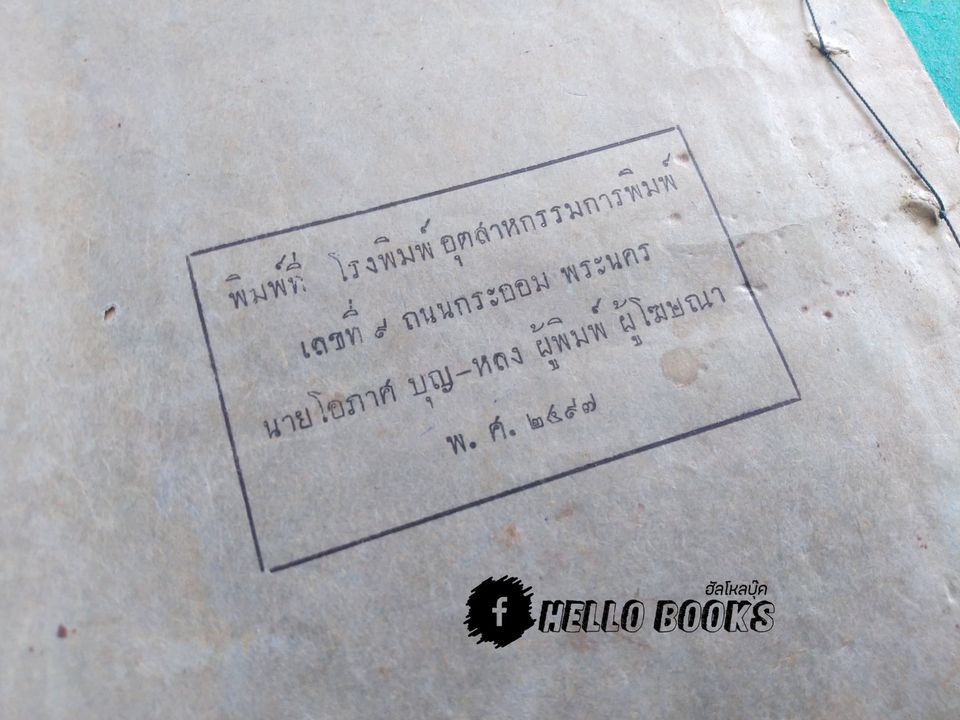 พิมพ์ที่ โรงพิมพ์ อุตสาหกรรมการพิมพ์
เลขที่ ๙ ถนนกระออม พระนคร
นายโอภาศ บุญ-หลง ผู้พิมพ์ ผู้โฆษณา
พ. ศ. ๒๔๙๗
ฮัลโหลบุ๊ค
f HELLO BOOKS